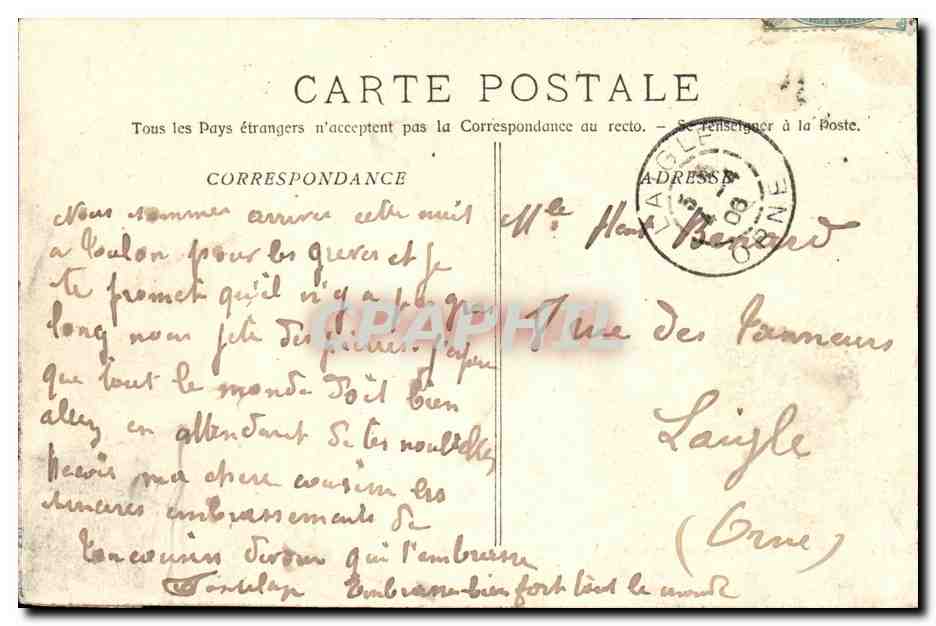 CARTE POSTALE
Tous les Pays étrangers n'acceptent pas la Correspondance au recto. - Se renseigner à la Poste.
CORRESPONDANCE
ADRESSE
LAIGLE
ORNE
08
Nous sommes arrives cette nuit
a Toulon pour les greves et je
te promet qu'il n'y a pas
long nous jete des pierres. J'espere
que tout le monde doit bien
allez en attendant de tes nouvelles
recois ma chere cousine les
sinceres embrassements de
Ton cousin devoue qui t'embrasse
Embrasse bien fort tout le monde
Mlle Benard
7 rue des Tanneurs
Laigle
(Orne)
CPAPHIL